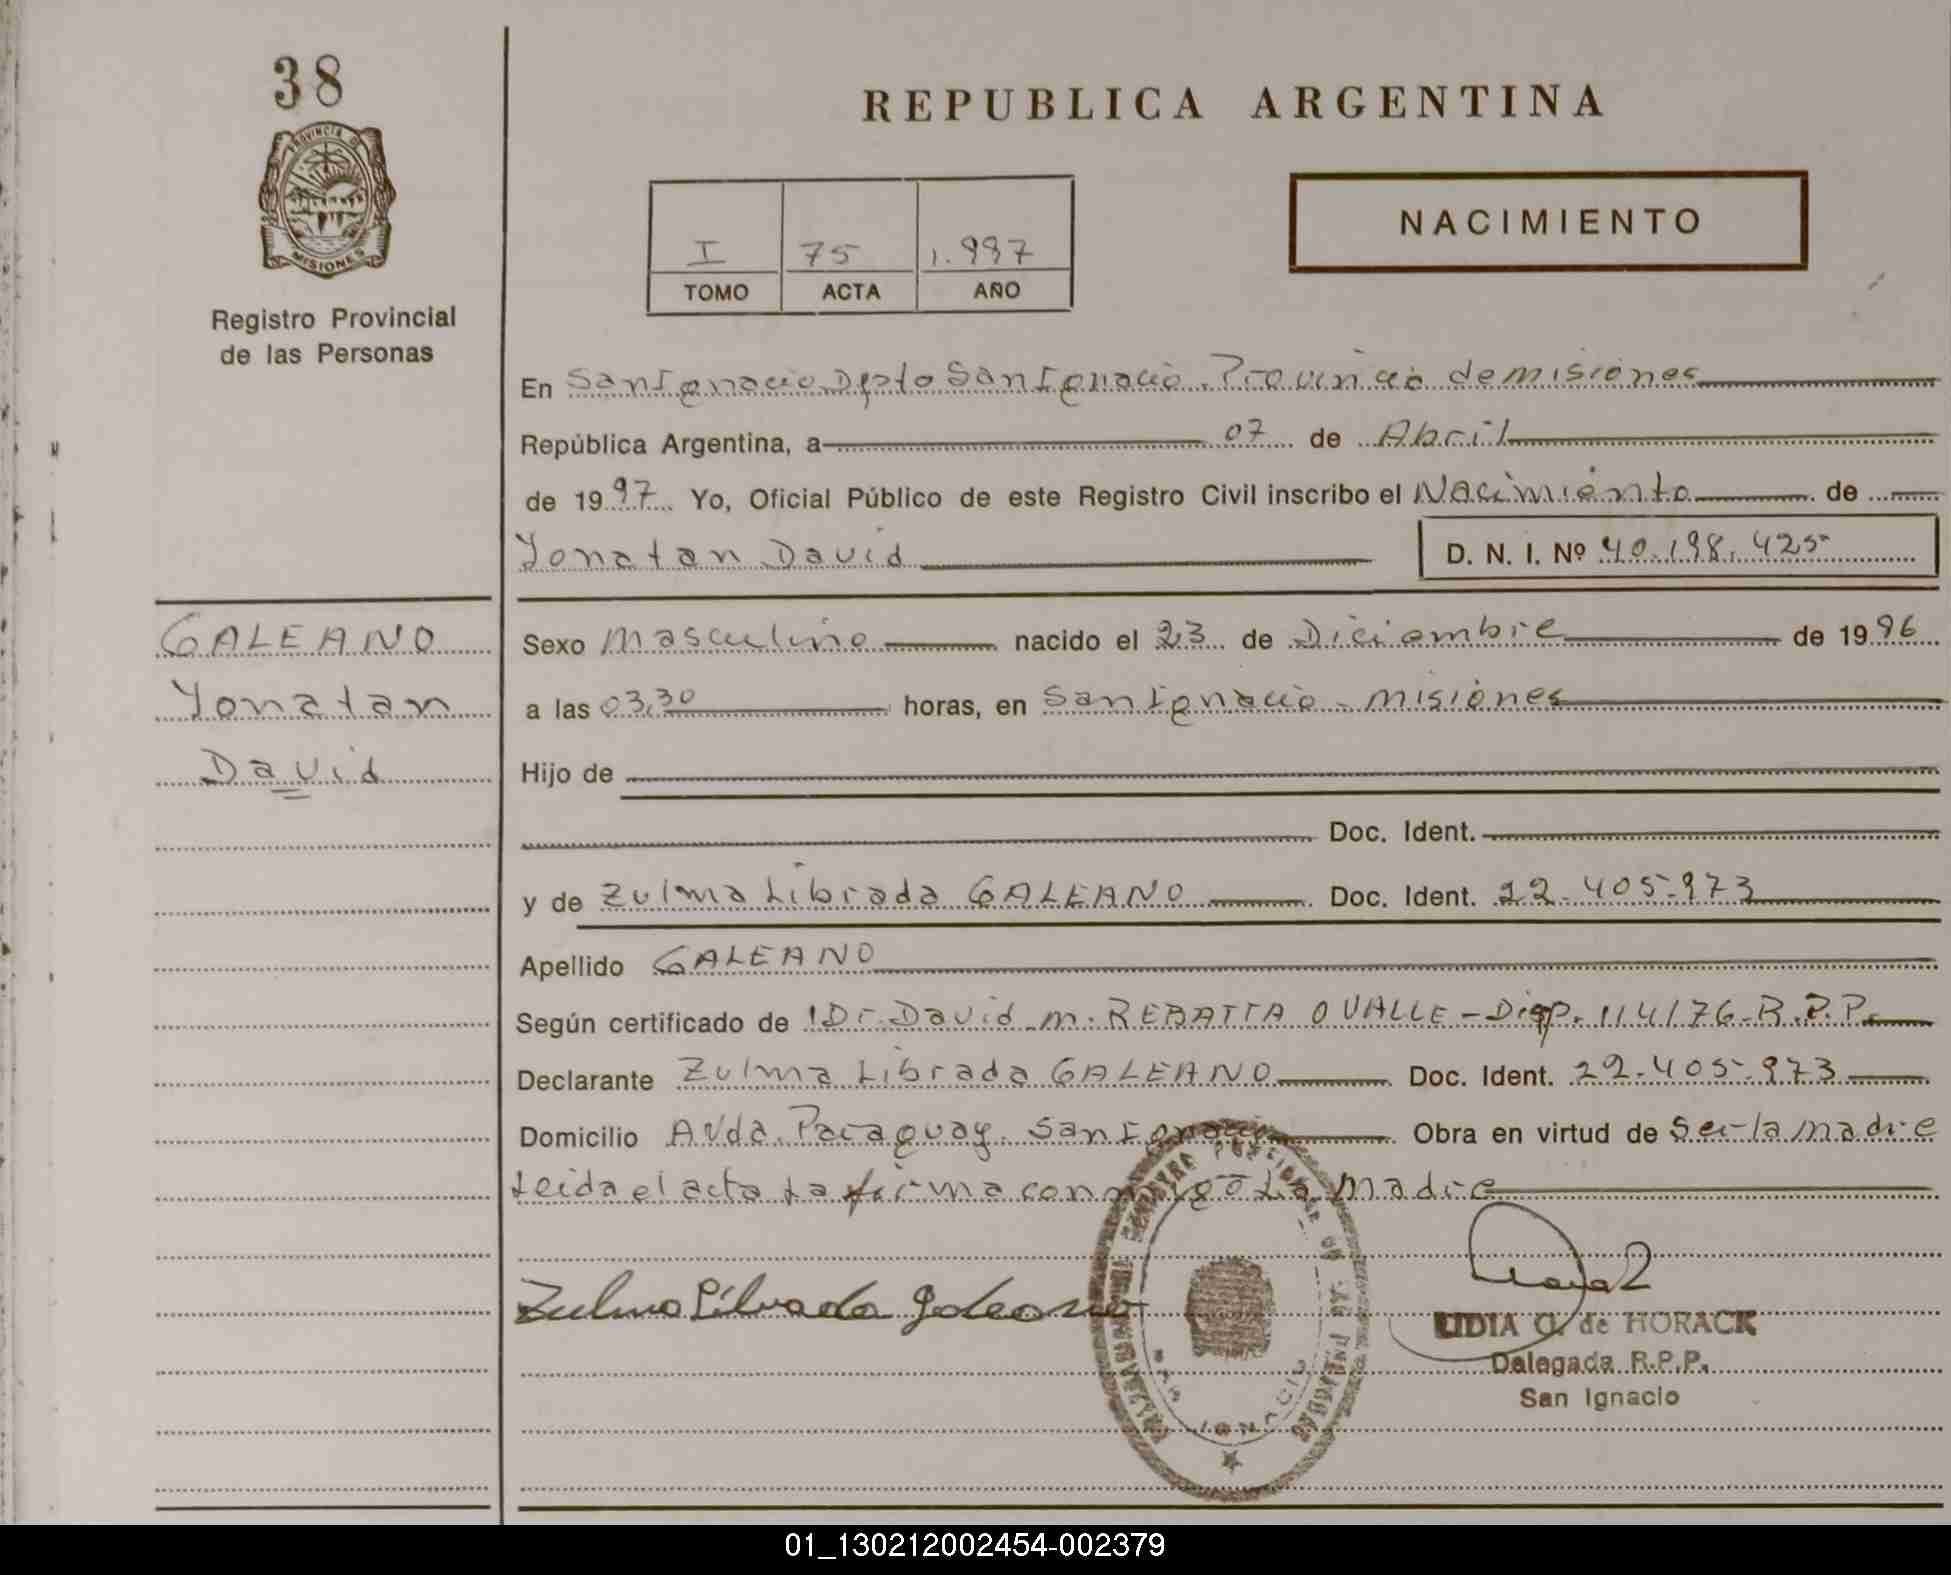 38
PROVINCIA DE
MISIONES
Registro Provincial
de las Personas
REPUBLICA ARGENTINA
I 75 1.997
TOMO ACTA AÑO
NACIMIENTO
En San Ignacio Dpto San Ignacio. Provincia de misiones
República Argentina, a 07 de Abril
de 1997 Yo, Oficial Público de este Registro Civil inscribo el Nacimiento de
Yonatan David D. N. I. Nº 40.198.425
GALEANO
Yonatan
David
Sexo masculino nacido el 23 de Diciembre de 1996
a las 03,30 horas, en San Ignacio - misiones
Hijo de
Doc. Ident.
y de Zulma Librada GALEANO Doc. Ident. 22.405.973
Apellido GALEANO
Según certificado de Dr. David m. REBATTA OVALLE - Disp. 114/76-R.P.P.
Declarante Zulma Librada GALEANO Doc. Ident. 22.405.973
Domicilio Avda. Paraguay. San Ignacio Obra en virtud de Ser la madre
Leida el acta La firma conmigo La Madre
Zulma Librada Galeano
SAN IGNACIO
LIDIA G. de HORACK
Delegada R.P.P.
San Ignacio
01_130212002454-002379